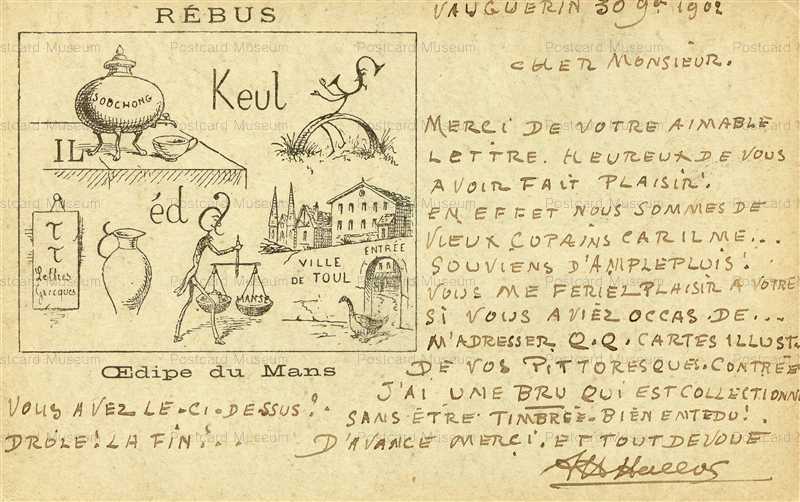 RÉBUS
SOUCHONG
Keul
IL
éd
τ
τ
Lettres
Grecques
MANSE
VILLE
DE TOUL
ENTRÉE
Œdipe du Mans
VAUGUERIN 30 9bre 1902
CHER MONSIEUR.
MERCI DE VOTRE AIMABLE
LETTRE. HEUREUX DE VOUS
AVOIR FAIT PLAISIR!
EN EFFET NOUS SOMMES DE
VIEUX COPAINS CAR IL ME...
SOUVIENS D'AMPLEPLUIS!
VOUS ME FERIEZ PLAISIR A VOTRE
SI VOUS AVIEZ OCCAS. DE...
M'ADRESSER Q.Q. CARTES ILLUST.
DE VOS PITTORESQUES. CONTRÉE
J'AI UNE BRU QUI EST COLLECTIONN
SANS ÊTRE TIMBRÉE. BIEN ENTEDU!
D'AVANCE MERCI. ET TOUT DEVOUÉ
VOUS AVEZ LE-CI-DESSUS?
DROLE! LA FIN!
Postcard Museum